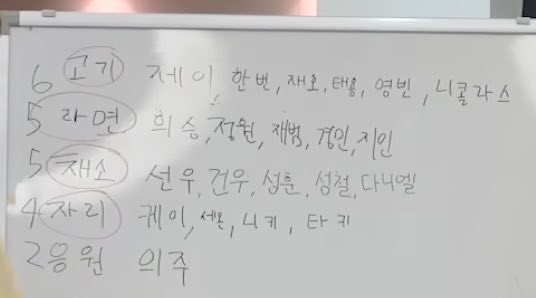 6 고기 제이, 한번, 재호, 태용, 영빈, 니콜라스
5 라면 희승, 정원, 재범, 경민, 지인
5 채소 선우, 건우, 성훈, 성철, 다니엘
4 자리 케이, 세온, 니키, 타키
2 응원 의주